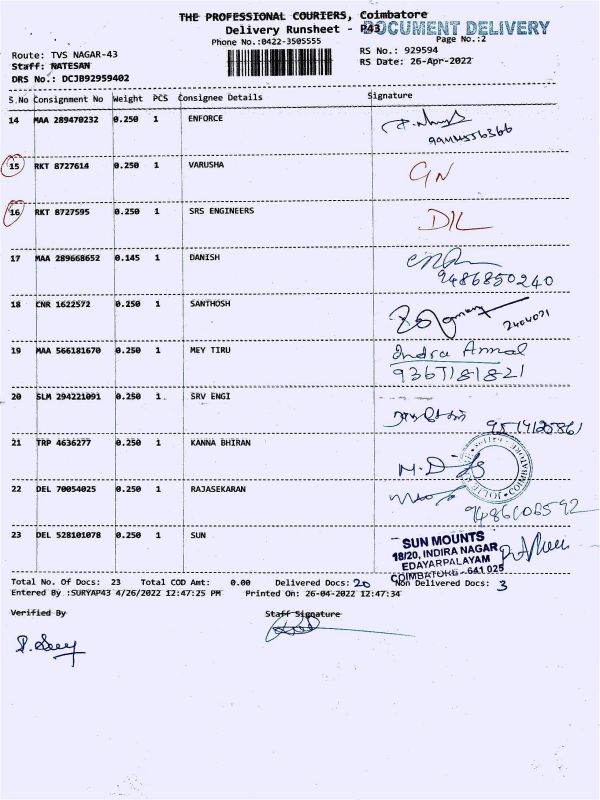 THE PROFESSIONAL COURIERS, Coimbatore
Delivery Runsheet - P43
DOCUMENT DELIVERY
Phone No.:0422-3505555
Page No.:2
Route: TVS NAGAR-43
RS No.: 929594
Staff: NATESAN
RS Date: 26-Apr-2022
DRS No.: DCJB92959402
S.No Consignment No Weight PCS Consignee Details Signature
14 MAA 289470232 0.250 1 ENFORCE
15 RKT 8727614 0.250 1 VARUSHA GN
16 RKT 8727595 0.250 1 SRS ENGINEERS DIL
17 MAA 289668652 0.145 1 DANISH
9486850240
18 CNR 1622572 0.250 1 SANTHOSH
19 MAA 566181670 0.250 1 MEY TIRU Indra Ammal
9367181821
20 SLM 294221091 0.250 1 SRV ENGI
21 TRP 4636277 0.250 1 KANNA BHIRAN
22 DEL 70054025 0.250 1 RAJASEKARAN
23 DEL 528101078 0.250 1 SUN
SUN MOUNTS
18/20, INDIRA NAGAR
EDAYARPALAYAM
COIMBATORE - 641 025
Total No. Of Docs: 23 Total COD Amt: 0.00 Delivered Docs: 20 Non Delivered Docs: 3
Entered By :SURYAP43 4/26/2022 12:47:25 PM Printed On: 26-04-2022 12:47:34
Verified By Staff Signature